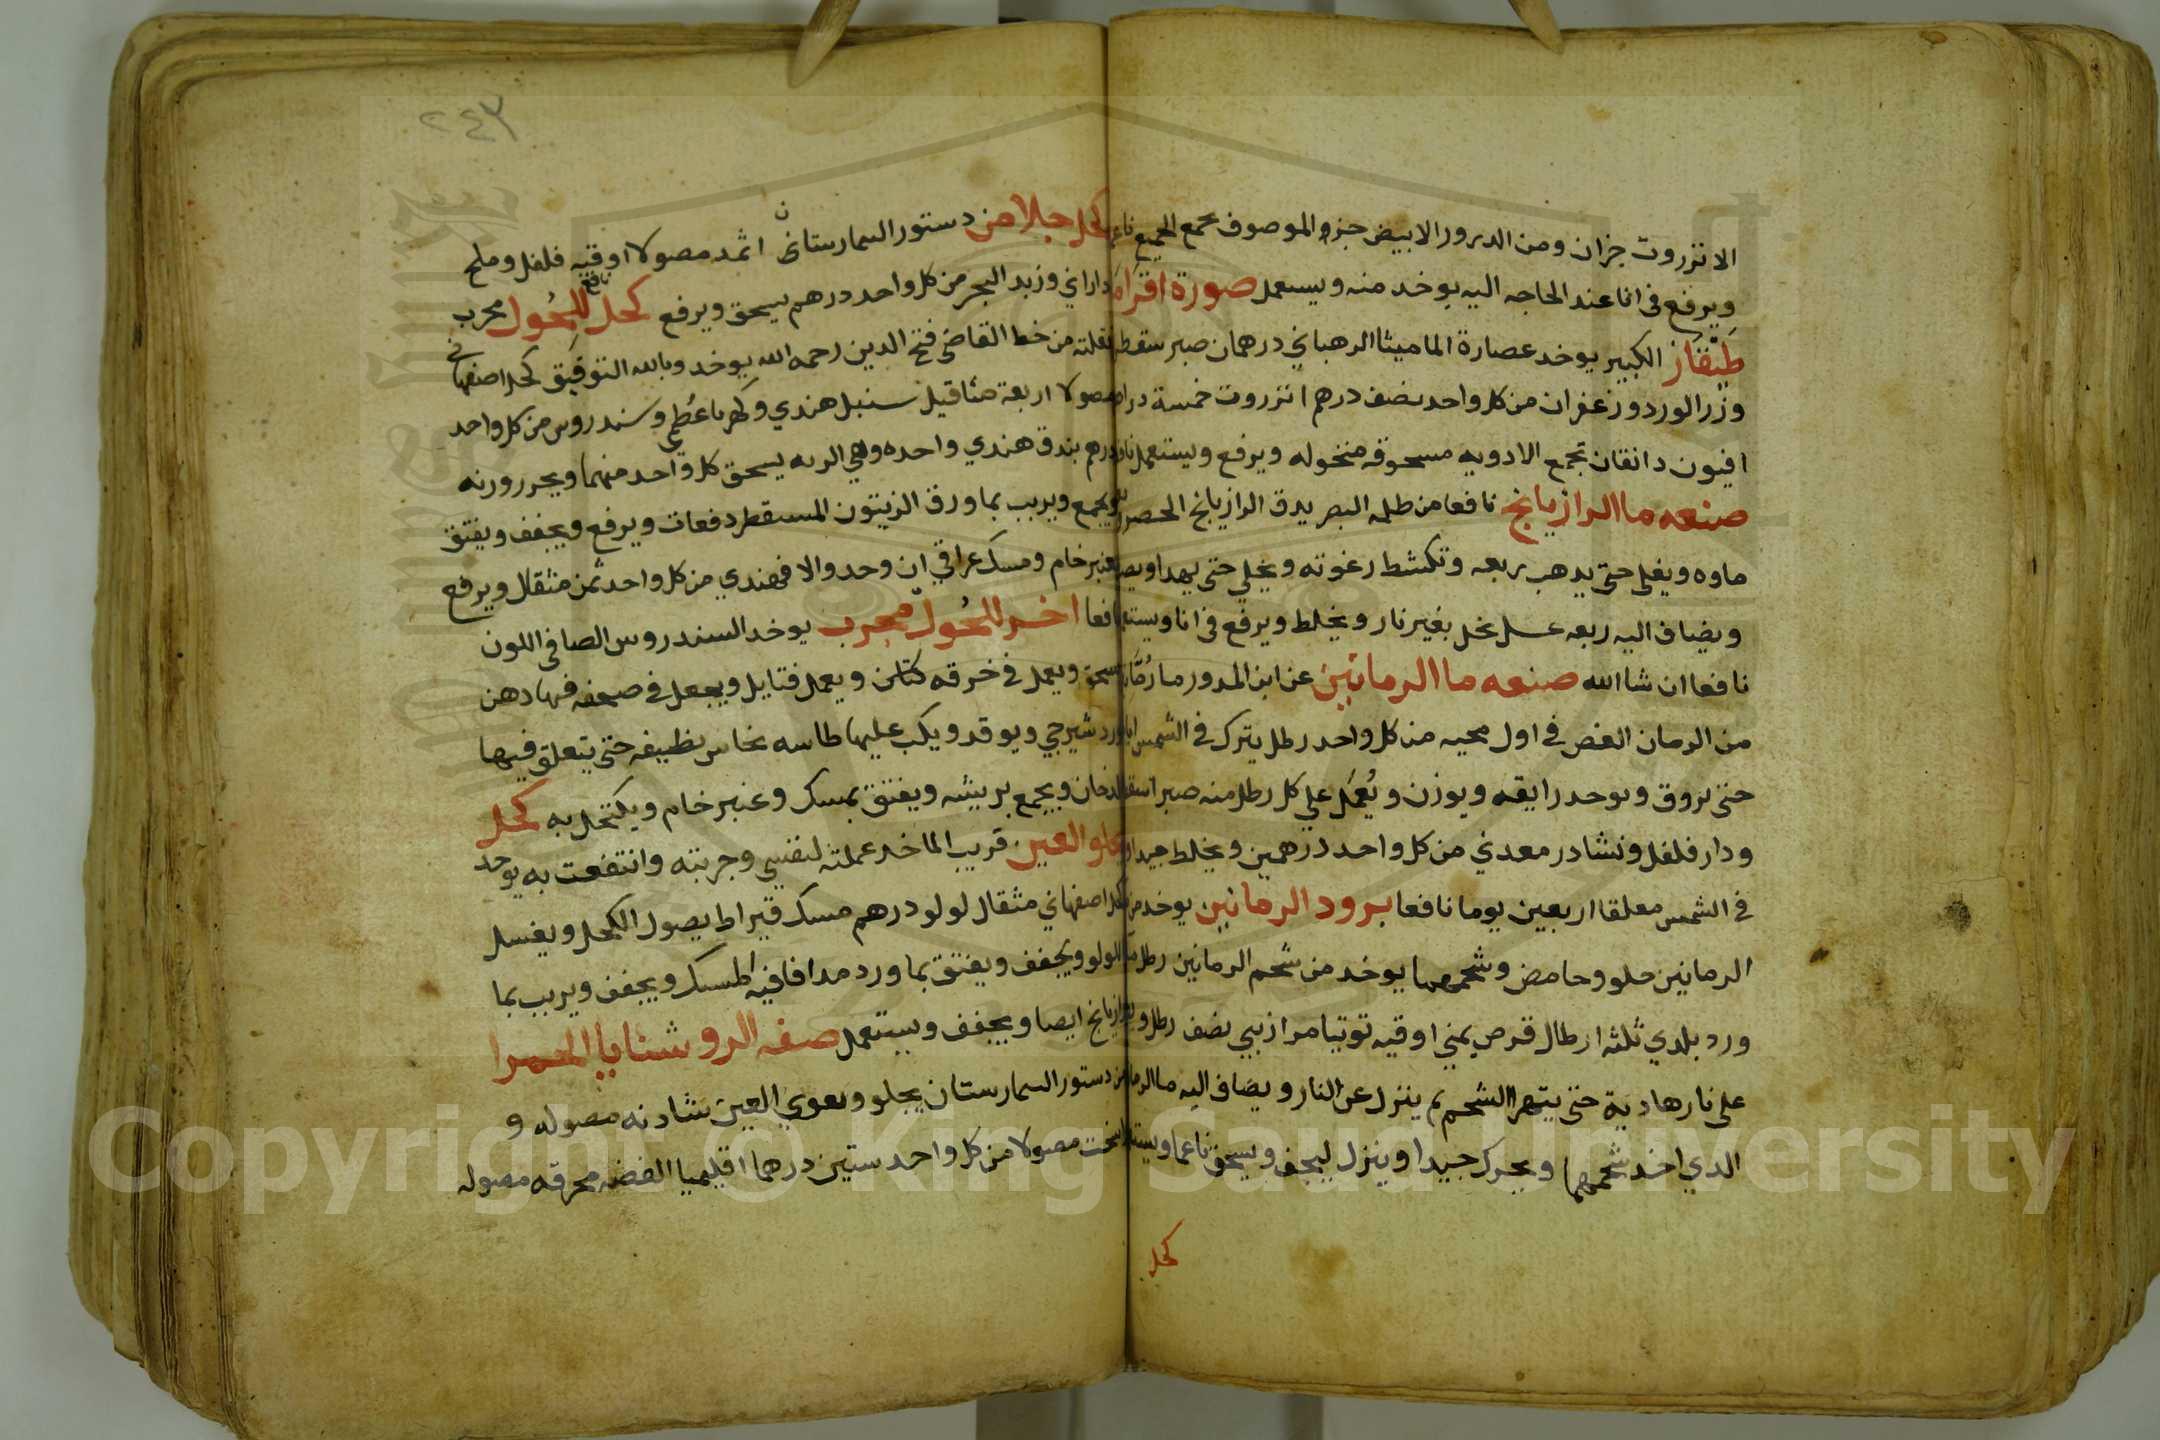 الانزروت جزان ومن الدرور الابيض جزو الموصوف يجمع الجميع ناعما
ويرفع فى انا عند الحاجه اليه يوخد منه ويستعمل صورة اقراص
الكبير يوخد عصارة الماميثا الرهباني درهمان صبر سقطرى
وزر الورد وزعفران من كل واحد نصف درهم انزروت خمسة دراهم
افيون دانقان تجمع الادويه مسحوقه منخوله ويرفع ويستعمل نافع
صنعه ما الرازيانج نافعا من ظلمه البصر يدق الرازيانج
ماوه ويغلى حتى يدهب ربعه وتكشط رغوته ويخلي حتى يهدا
ويضاف اليه ربعه عسل نحل بغير نار ويخلط ويرفع فى انا ويستعمل
نافعا ان شا الله صنعه ما الرمانين عن ابن المدور ما
من الرمان الغض فى اول مجيه من كل واحد رطل يترك فى الشمس
حتى يروق ويوخد رايقه ويوزن ويُعمَل على كل رطل منه صبر
ودار فلفل ونشادر معدني من كل واحد درهمين ويخلط جيدا
فى الشمس معلقا اربعين يوما نافعا برود الرمانين يوخد من
الرمانين حلو وحامض وشحمهما يوخد من شحم الرمانين رطل
ورد بلدي ثلثه ارطال قرص يمني اوقيه توتيا مرازبي نصف رطل
على نار هادية حتى يتهرا الشحم ثم ينزل عن النار ويضاف اليه ما الرمان
الدي اخد شحمهما ويحرك جيدا وينزل ليجف ويسحق ناعما ويستعمل
كحل
٢٤٣
كحل جلا من دستور البيمارستان اثمد مصولا اوقيه فلفل وملح
داراني وزبد البحر من كل واحد درهم يسحق ويرفع كحل للحُول نافع مجرب
نقلته من خط القاضي فتح الدين رحمه الله يوخد وبالله التوفيق كحل اصفهاني
مصولا اربعة مثاقيل سنبل هندي وكهربا وسندروس من كل واحد
درهم بندق هندي واحده وهي الريه يسحق كل واحد منهما ويحرر وزنه
ويجمع ويربب بما ورق الزيتون المستقطر دفعات ويرفع ويجفف ويفتق
بعنبر خام ومسك عراقي ان وجد والا فهندي من كل واحد ثمن مثقال ويرفع
نافعا اخر للحُول مجرب يوخد السندروس الصافى اللون
يسحق ويعمل في خرقه كتان ويعمل فتايل ويجعل فى صحفه فيها دهن
ورد شيرجي ويوقد ويكب عليها طاسه نحاس نظيفه حتى يتعلق فيها
الدخان ويجمع بريشه ويفتق بمسك وعنبر خام ويكتحل به كحل
يجلو العين قريب الماخد عملته لنفسي وجربته وانتفعت به يوخد
كحل اصفهاني مثقال لولو درهم مسك قيراط يصول الكحل ويغسل
اللولو ويجفف ويفتق بما ورد مدافا فيه المسك ويجفف ويربب بما
رازيانج ايضا ويجفف ويستعمل صفه الروشنايا الحمرا
من دستور البيمارستان يجلو ويقوي العين شادنه مصوله و
مصولا من كل واحد ستين درهما اقليميا الفضه محرقه مصوله
Copyright © King Saud University